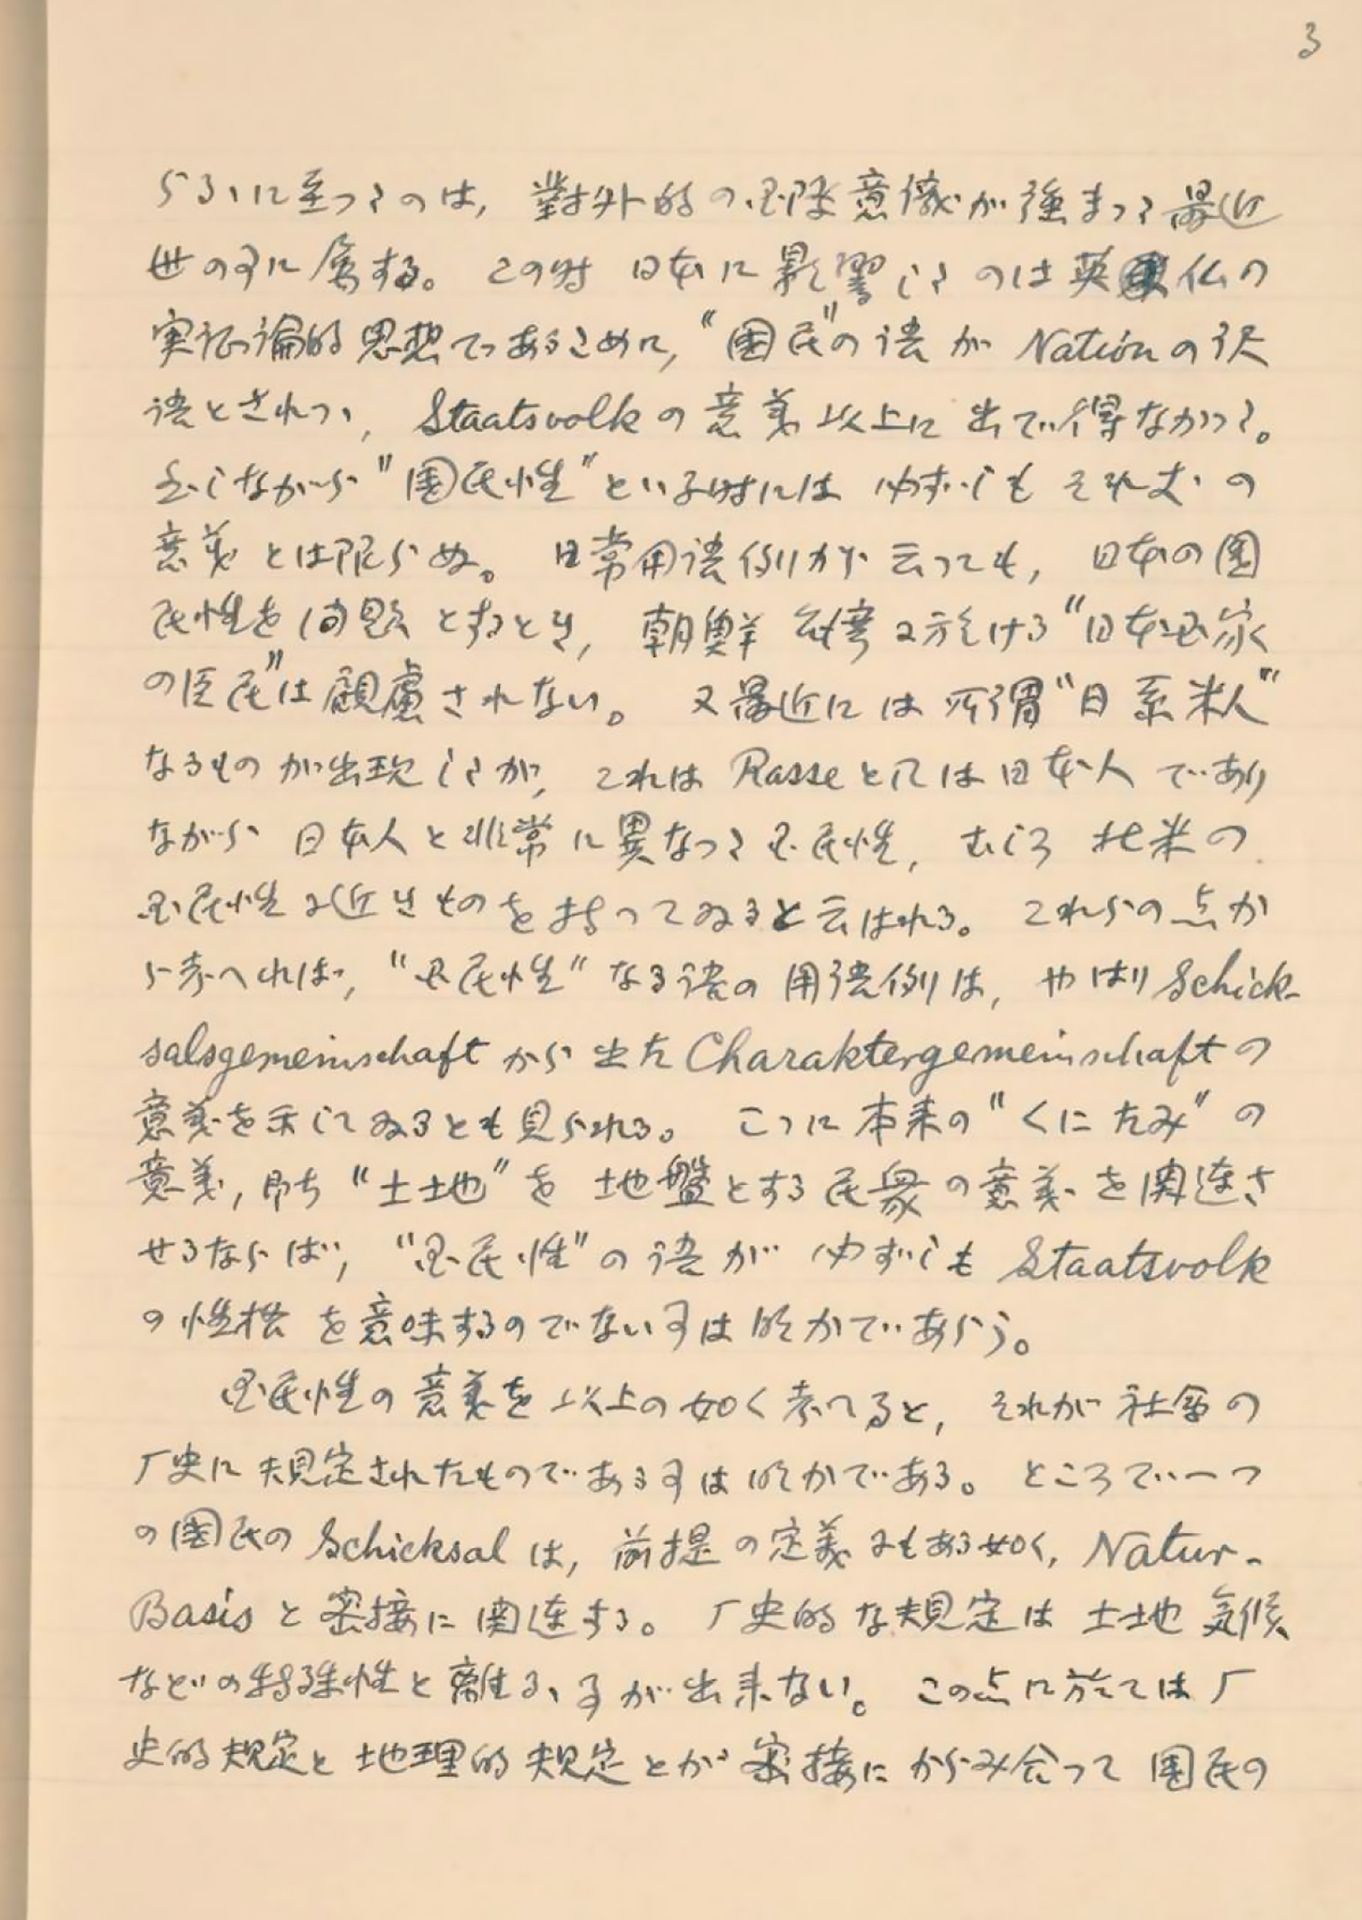 3
らるゝに至つたのは, 對外的の国際意識が強まつた最近
世の事に属する。この時 日本に影響したのは英仏の
実証論的思想であるために, "國民"の語が Nationの訳
語とされつゝ, Staatsvolkの意義以上に出で得なかつた。
しかしながら"國民性"といふ時には必ずしもそれだけの
意義とは限らぬ。日常用語例から云つても, 日本の國
民性を問題とするとき, 朝鮮台湾に於ける"日本国家
の臣民"は顧慮されない。又最近には所謂"日系米人"
なるものが出現したが, これは Rasseとしては日本人であり
ながら 日本人と非常に異なつた国民性, むしろ北米の
国民性に近きものを持つてゐると云はれる。これらの点か
ら考へれば, "国民性"なる語の用語例は, やはりSchick-
salsgemeinschaftから出たCharaktergemeinschaftの
意義を示してゐるとも見られる。こゝに本来の"くにたみ"の
意義, 即ち"土地"を地盤とする民衆の意義を関連さ
せるならば, "国民性"の語が必ずしもStaatsvolk
の性格を意味するのでない事は明かであらう。
国民性の意義を以上の如く考へると, それが社会の
歴史に規定されたものである事は明かである。ところで一つ
の國民のSchicksalは, 前提の定義にもある如く, Natur-
Basisと密接に関連する。歴史的な規定は土地 気候
などの特殊性と離るゝ事が出来ない。この点に於ては歴
史的規定と地理的規定とが密接にからみ合つて國民の